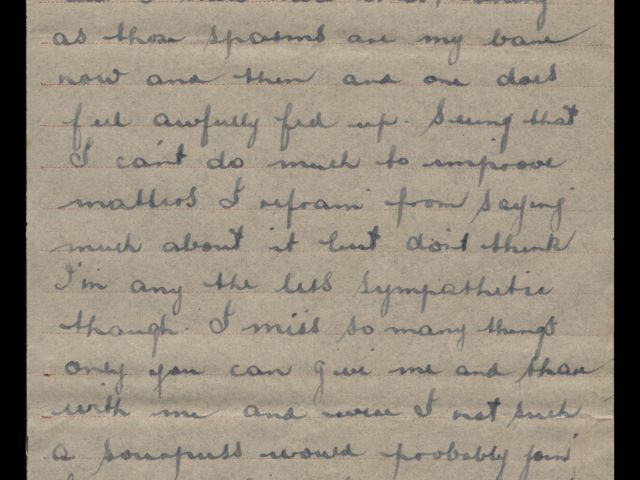 as those spasms are my bane
now and then and one does
feel awfully fed up. Seeing that
I can't do much to improve
matters I refrain from saying
much about it but don't think
I'm any the less sympathetic
though. I miss so many things
only you can give me and share
with me and were I not such
a sourpuss would probably join